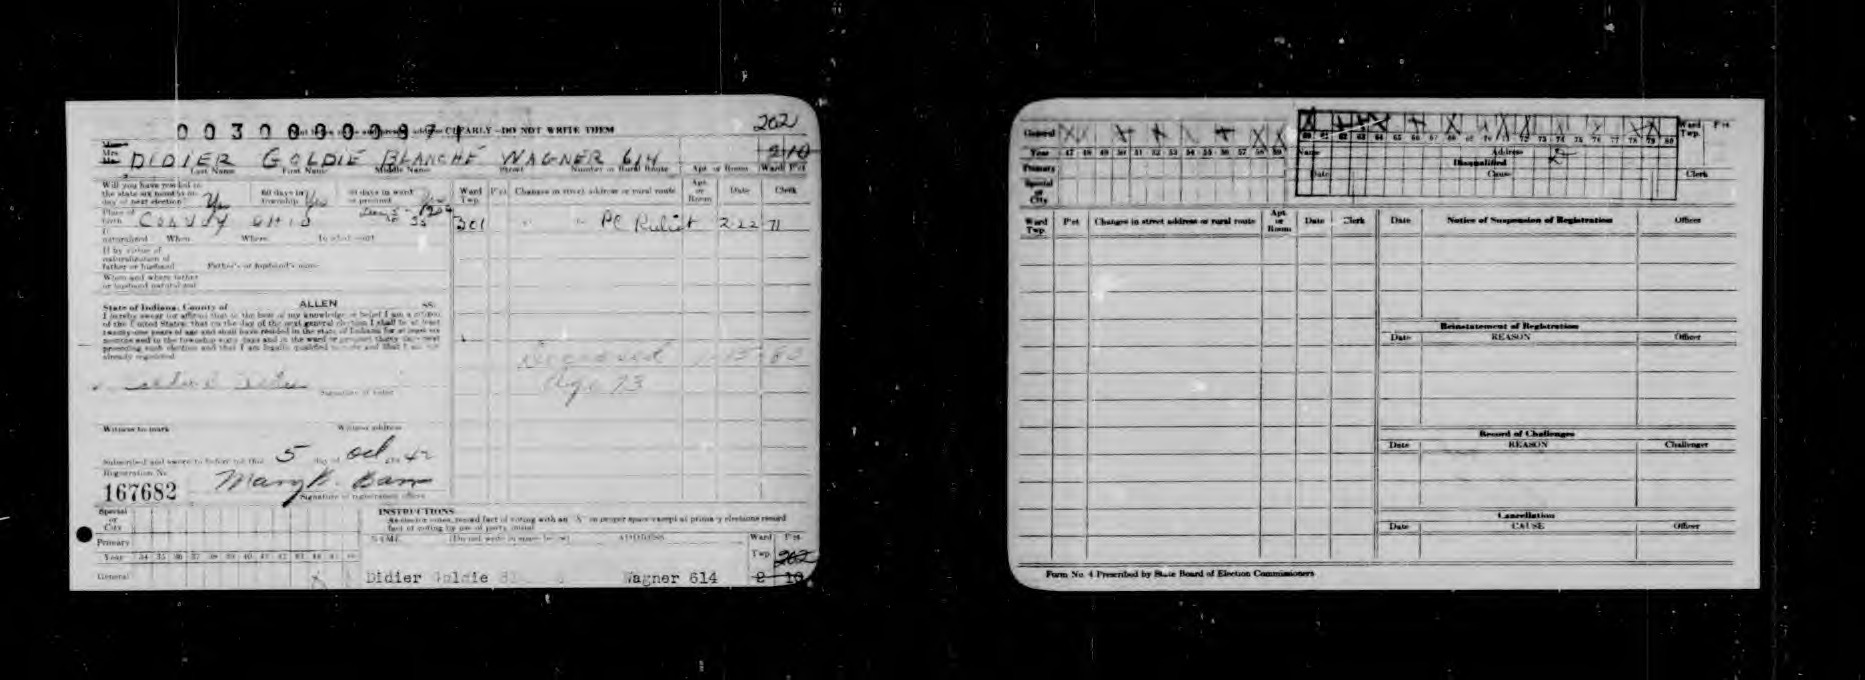 CLEARLY - DO NOT WRITE THEM
202
Mrs. DIDIER GOLDIE BLANCHE WAGNER 614 210
Last Name First Name Middle Name Street Number or Rural Route Apt. or Room Ward Pct
Will you have resided in the state six months on day of next election Yes 60 days in township Yes 30 days in ward or precinct
Ward Twp. Pct Changes in street address or rural route Apt. or Room Date Clerk
Place of birth CONVOY OHIO
301 " " PC 2-22 71
If naturalized When Where In what court
If by virtue of naturalization of father or husband Father's or husband's name
When and where father or husband naturalized
State of Indiana, County of ALLEN SS:
I hereby swear (or affirm) that to the best of my knowledge or belief I am a citizen
of the United States; that on the day of the next general election I shall be at least
twenty-one years of age and shall have resided in the state of Indiana for at least six
months and in the township sixty days and in the ward or precinct thirty days next
preceding such election and that I am legally qualified to vote and that I am not
already registered.
Age 73
Signature of voter
Witness to mark Witness address
Subscribed and sworn to before me this 5 day of Oct 42
Registration No.
167682 Mary
Signature of registration officer
INSTRUCTIONS
As election votes, record fact of voting with an "X" in proper space except at primary elections record
fact of voting by use of party initial
Special or City
Primary
NAME (Do not write in space below) ADDRESS Ward Pct
Twp. 202
Year 34 35 36 37 38 39 40 41 42 43 44 45 46
General X Didier Goldie Wagner 614 2 10
General
Year 47 48 49 50 51 52 53 54 55 56 57 58 59
Primary
Special or City
60 61 62 63 64 65 66 67 68 69 70 71 72 73 74 75 76 77 78 79 80
Ward Twp. Pct
Name Address
Disqualified
Date Cause Clerk
Ward Twp. Pct Changes in street address or rural route Apt. or Room Date Clerk Date Notice of Suspension of Registration Officer
Reinstatement of Registration
Date REASON Officer
Record of Challenges
Date REASON Challenger
Cancellation
Date CAUSE Officer
Form No. 4 Prescribed by State Board of Election Commissioners